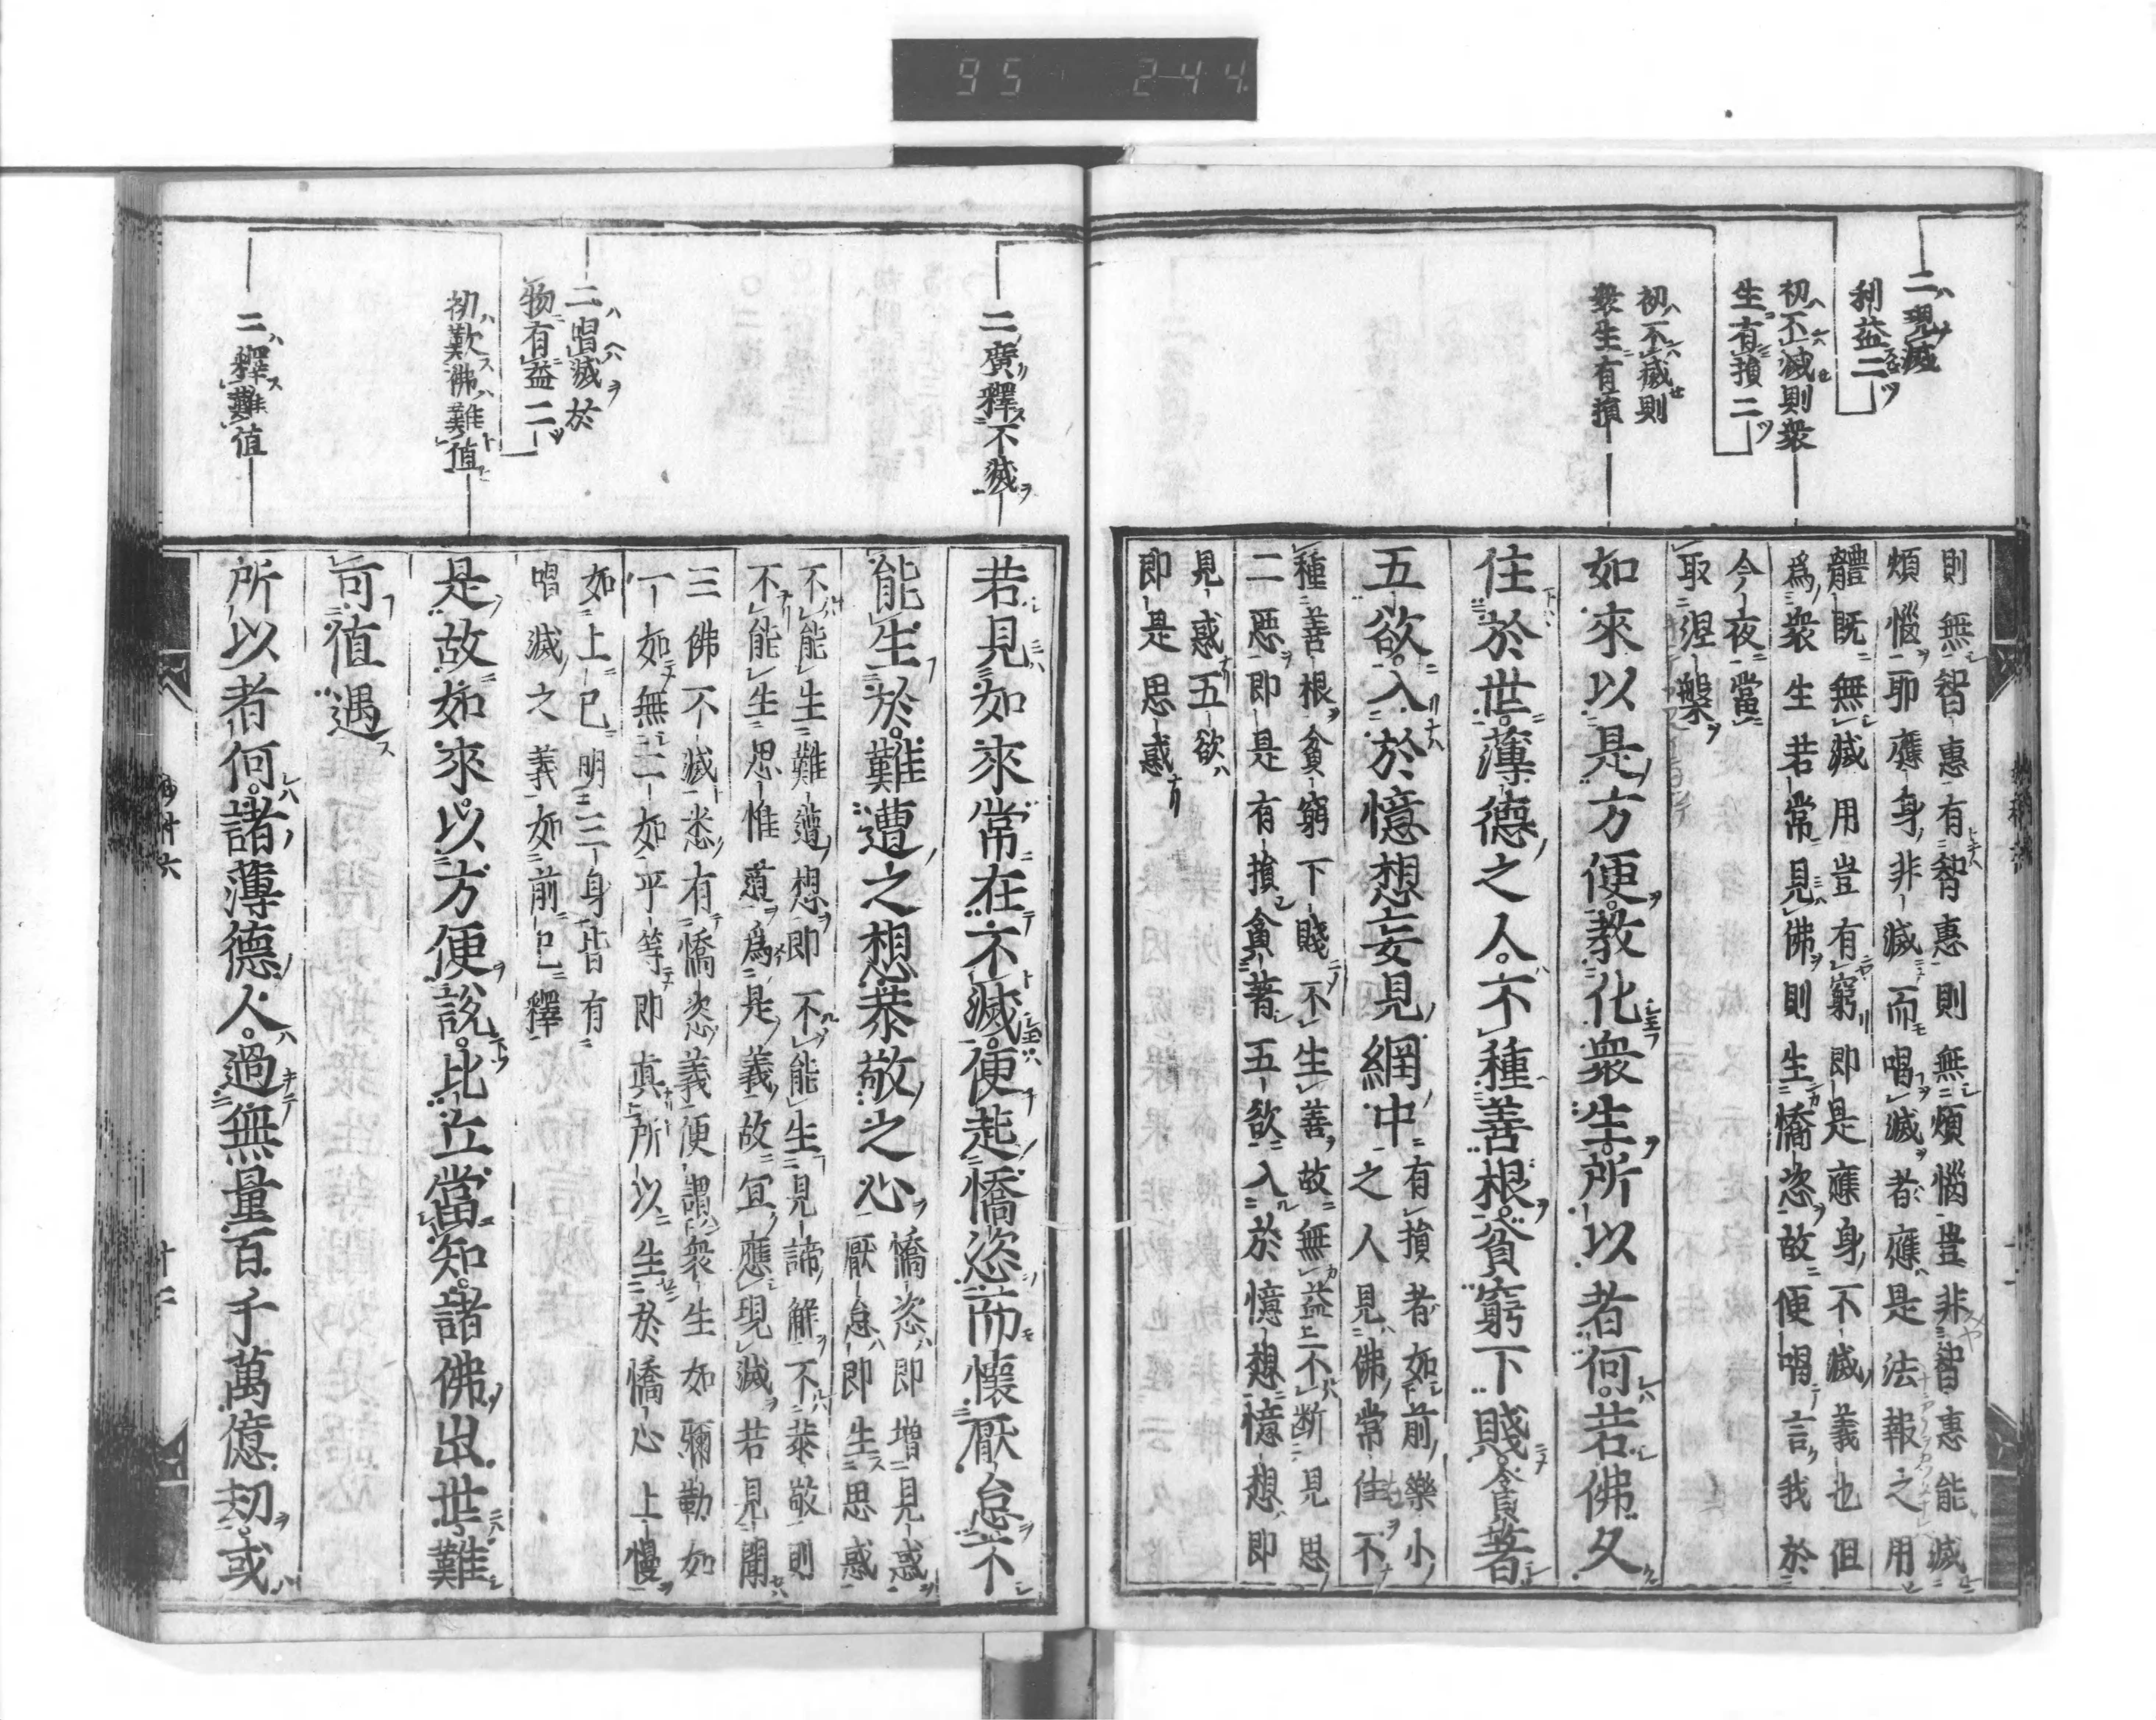 95 244
二現滅
利益二
初不滅則衆
生有損二
初不滅則
衆生有損
則無智惠有智惠則無煩惱豈非智惠能滅
煩惱二耶應身非滅而唱滅者應是法報之用
體旣無滅用豈有窮即是應身不滅義也但
爲衆生若常見佛則生憍恣故便唱言我於
今夜當
取涅槃
如來以是方便教化衆生所以者何若佛久
住於世薄德之人不種善根貧窮下賤貪著
五欲入於憶想妄見網中
有損者如前樂小
之人見佛常住不
種善根貧窮下賤不生善故無益二不斷見思
二惡即是有損貪著五欲入於憶想憶想即
見惑五欲
即是思惑
二廣釋不滅
二唱滅於
物有益二
初歎佛難値
二釋難値
若見如來常在不滅便起憍恣而懷厭怠不
能生於難遭之想恭敬之心
憍恣即增見惑
厭怠即生思惑
不能生難遭想即不能生見諦解不恭敬則
不能生思惟道爲是義故宜應現滅若見聞
三佛不滅悉有憍恣義便謂衆生如彌勒如
一如無二如平等即眞所以生於憍心上慢
如上已明三身皆有
唱滅之義如前已釋
是故如來以方便說比丘當知諸佛出世難
可値遇
所以者何諸薄德人過無量百千萬億劫或
十二